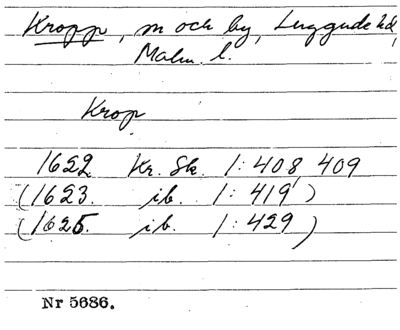 Kropp, m och by, Luggude hd,
Malm. l.
Krop
1622 Kr. Sk. 1:408, 409
(1623. ib. 1:419)
(1625. ib. 1:429)
Nr 5686.